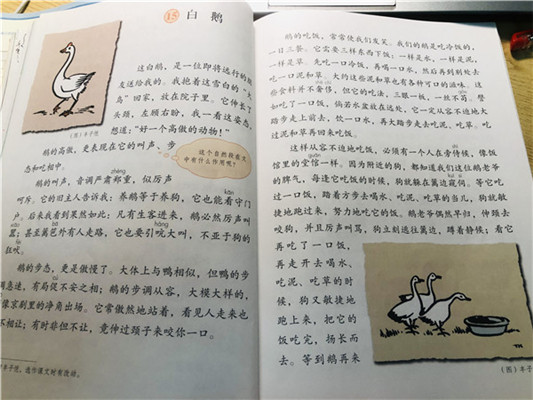 15 白鹅
这白鹅，是一位即将远行的朋
友送给我的。我抱着这雪白的“大
鸟”回家，放在院子里。它伸长了
头颈，左顾右盼，我一看这姿态，
想道：“好一个高傲的动物！”
（图）丰子恺
鹅的高傲，更表现在它的叫声、步
态和吃相中。
这个自然段在文
中有什么作用呢？
zhèng
鹅的叫声，音调严肃郑重，似厉声
kān
呵斥。它的旧主人告诉我：养鹅等于养狗，它也能看守门
户。后来我看到果然如此：凡有生客进来，鹅必然厉声叫
嚣；甚至篱笆外有人走路，它也要引吭大叫，不亚于狗的
狂吠。
鹅的步态，更是傲慢了。大体上与鸭相似，但鸭的步
调急速，有局促不安之相；鹅的步调从容，大模大样的，
像京剧里的净角出场。它常傲然地站着，看见人走来也
不相让；有时非但不让，竟伸过颈子来咬你一口。
丰子恺，选作课文时有改动。
鹅的吃饭，常常使我们发笑。我们的鹅是吃冷饭的，
一日三餐。它需要三样东西下饭：一样是水，一样是泥，
一样是草。先吃一口冷饭，再喝一口水，然后再到别处去
吃一口泥和草。大约这些泥和草也有各种可口的滋味。这
些食料并不奢侈，但它的吃法，三眼一板，一丝不苟。譬
如吃了一口饭，倘若水盆放在远处，它一定从容不迫地大
踏步走上前去，饮一口水，再大踏步走去吃泥、吃草。吃
过泥和草再回来吃饭。
这样从容不迫地吃饭，必须有一个人在旁侍候，像饭
馆里的堂倌一样。因为附近的狗，都知道我们这位鹅老爷
的脾气，每逢它吃饭的时候，狗就躲在篱边窥伺。等它吃
过一口饭，踏着方步去喝水、吃泥、吃草的当儿，狗就敏
捷地跑过来，努力地吃它的饭。鹅老爷偶然早归，伸颈去
咬狗，并且厉声叫骂，狗立刻逃往篱边，蹲着静候；看它
再吃了一口饭，
再走开去喝水、
吃泥、吃草的时
候，狗又敏捷地
跑上来，把它的
饭吃完，扬长而
去。等到鹅再来
（图）丰子